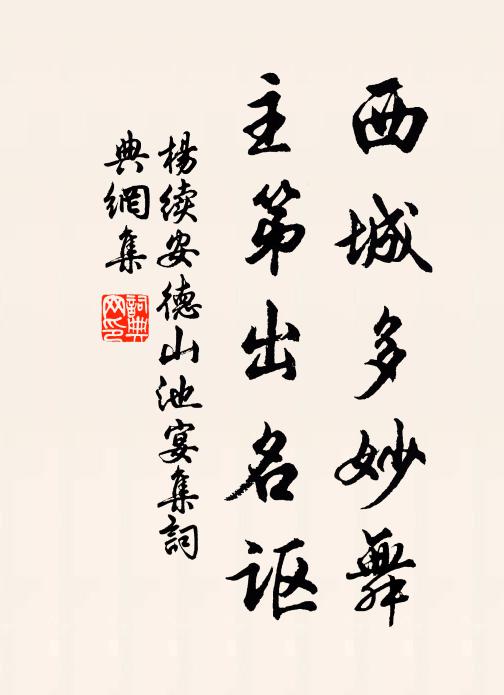 西城多妙舞
主第出名讴
楊续安德山池宴集詞
典網集
詞典
网印